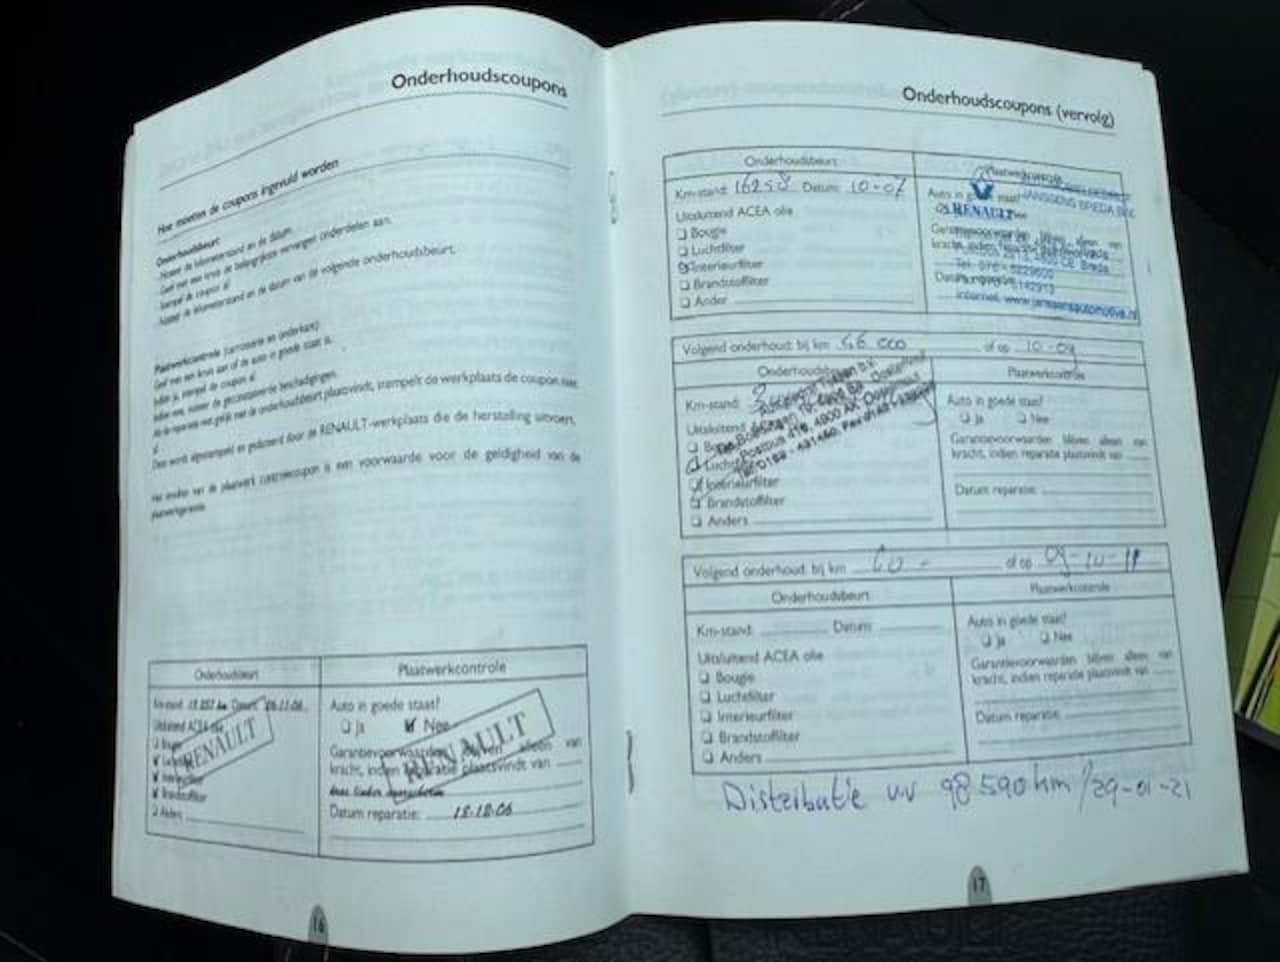 Onderhoudscoupons
Hoe moeten de coupons ingevuld worden
Onderhoudsbeurt
- Noteer de kilometerstand en de datum.
- Geef met een kruis de belangrijkste vervangen onderdelen aan.
- Stempel de coupon af.
- Noteer de kilometerstand en de datum van de volgende onderhoudsbeurt.
Plaatwerkcontrole (carrosserie en onderkant)
Geef met een kruis aan of de auto in goede staat is.
Indien ja, stempel de coupon af.
Indien nee, noteer de geconstateerde beschadigingen.
Als de reparatie niet gelijk met de onderhoudsbeurt plaatsvindt, stempelt de werkplaats de coupon niet
af.
Deze wordt afgestempeld en gedateerd door de RENAULT-werkplaats die de herstelling uitvoert.
Het invullen van de plaatwerk controlecoupon is een voorwaarde voor de geldigheid van de
plaatwerkgarantie.
Onderhoudsbeurt
Km-stand: Datum:
Uitsluitend ACEA olie
Bougie
Luchtfilter
Interieurfilter
Brandstoffilter
Anders
RENAULT
Plaatwerkcontrole
Auto in goede staat?
Ja Nee
Garantievoorwaarden blijven alleen van
kracht, indien reparatie plaatsvindt van
Datum reparatie: 18-12-06
RENAULT
16
Onderhoudscoupons (vervolg)
Onderhoudsbeurt
Km-stand: 16258 Datum: 10-07
Uitsluitend ACEA olie
Bougie
Luchtfilter
Interieurfilter
Brandstoffilter
Ander
Plaatwerkcontrole
Auto in staat?
JANSSENS BREDA
RENAULT
Garantievoorwaarden blijven alleen van
kracht, indien
Breda
Tel. 076 - 5229600
Internet: www.janssensautomotive.nl
Volgend onderhoud: bij km 46.000 of op 10-09
Onderhoudsbeurt
Km-stand:
Uitsluitend
Luchtfilter
Interieurfilter
Brandstoffilter
Anders
Oosterhout
Postbus 416, 4900 AK Oosterhout
Plaatwerkcontrole
Auto in goede staat?
Ja Nee
Garantievoorwaarden blijven alleen van
kracht, indien reparatie plaatsvindt van
Datum reparatie:
Volgend onderhoud: bij km 60 - of op 09-10-11
Onderhoudsbeurt
Km-stand: Datum:
Uitsluitend ACEA olie
Bougie
Luchtfilter
Interieurfilter
Brandstoffilter
Anders
Plaatwerkcontrole
Auto in goede staat?
Ja Nee
Garantievoorwaarden blijven alleen van
kracht, indien reparatie plaatsvindt van
Datum reparatie:
Distributie v.v 98 590 km / 29-01-21
17